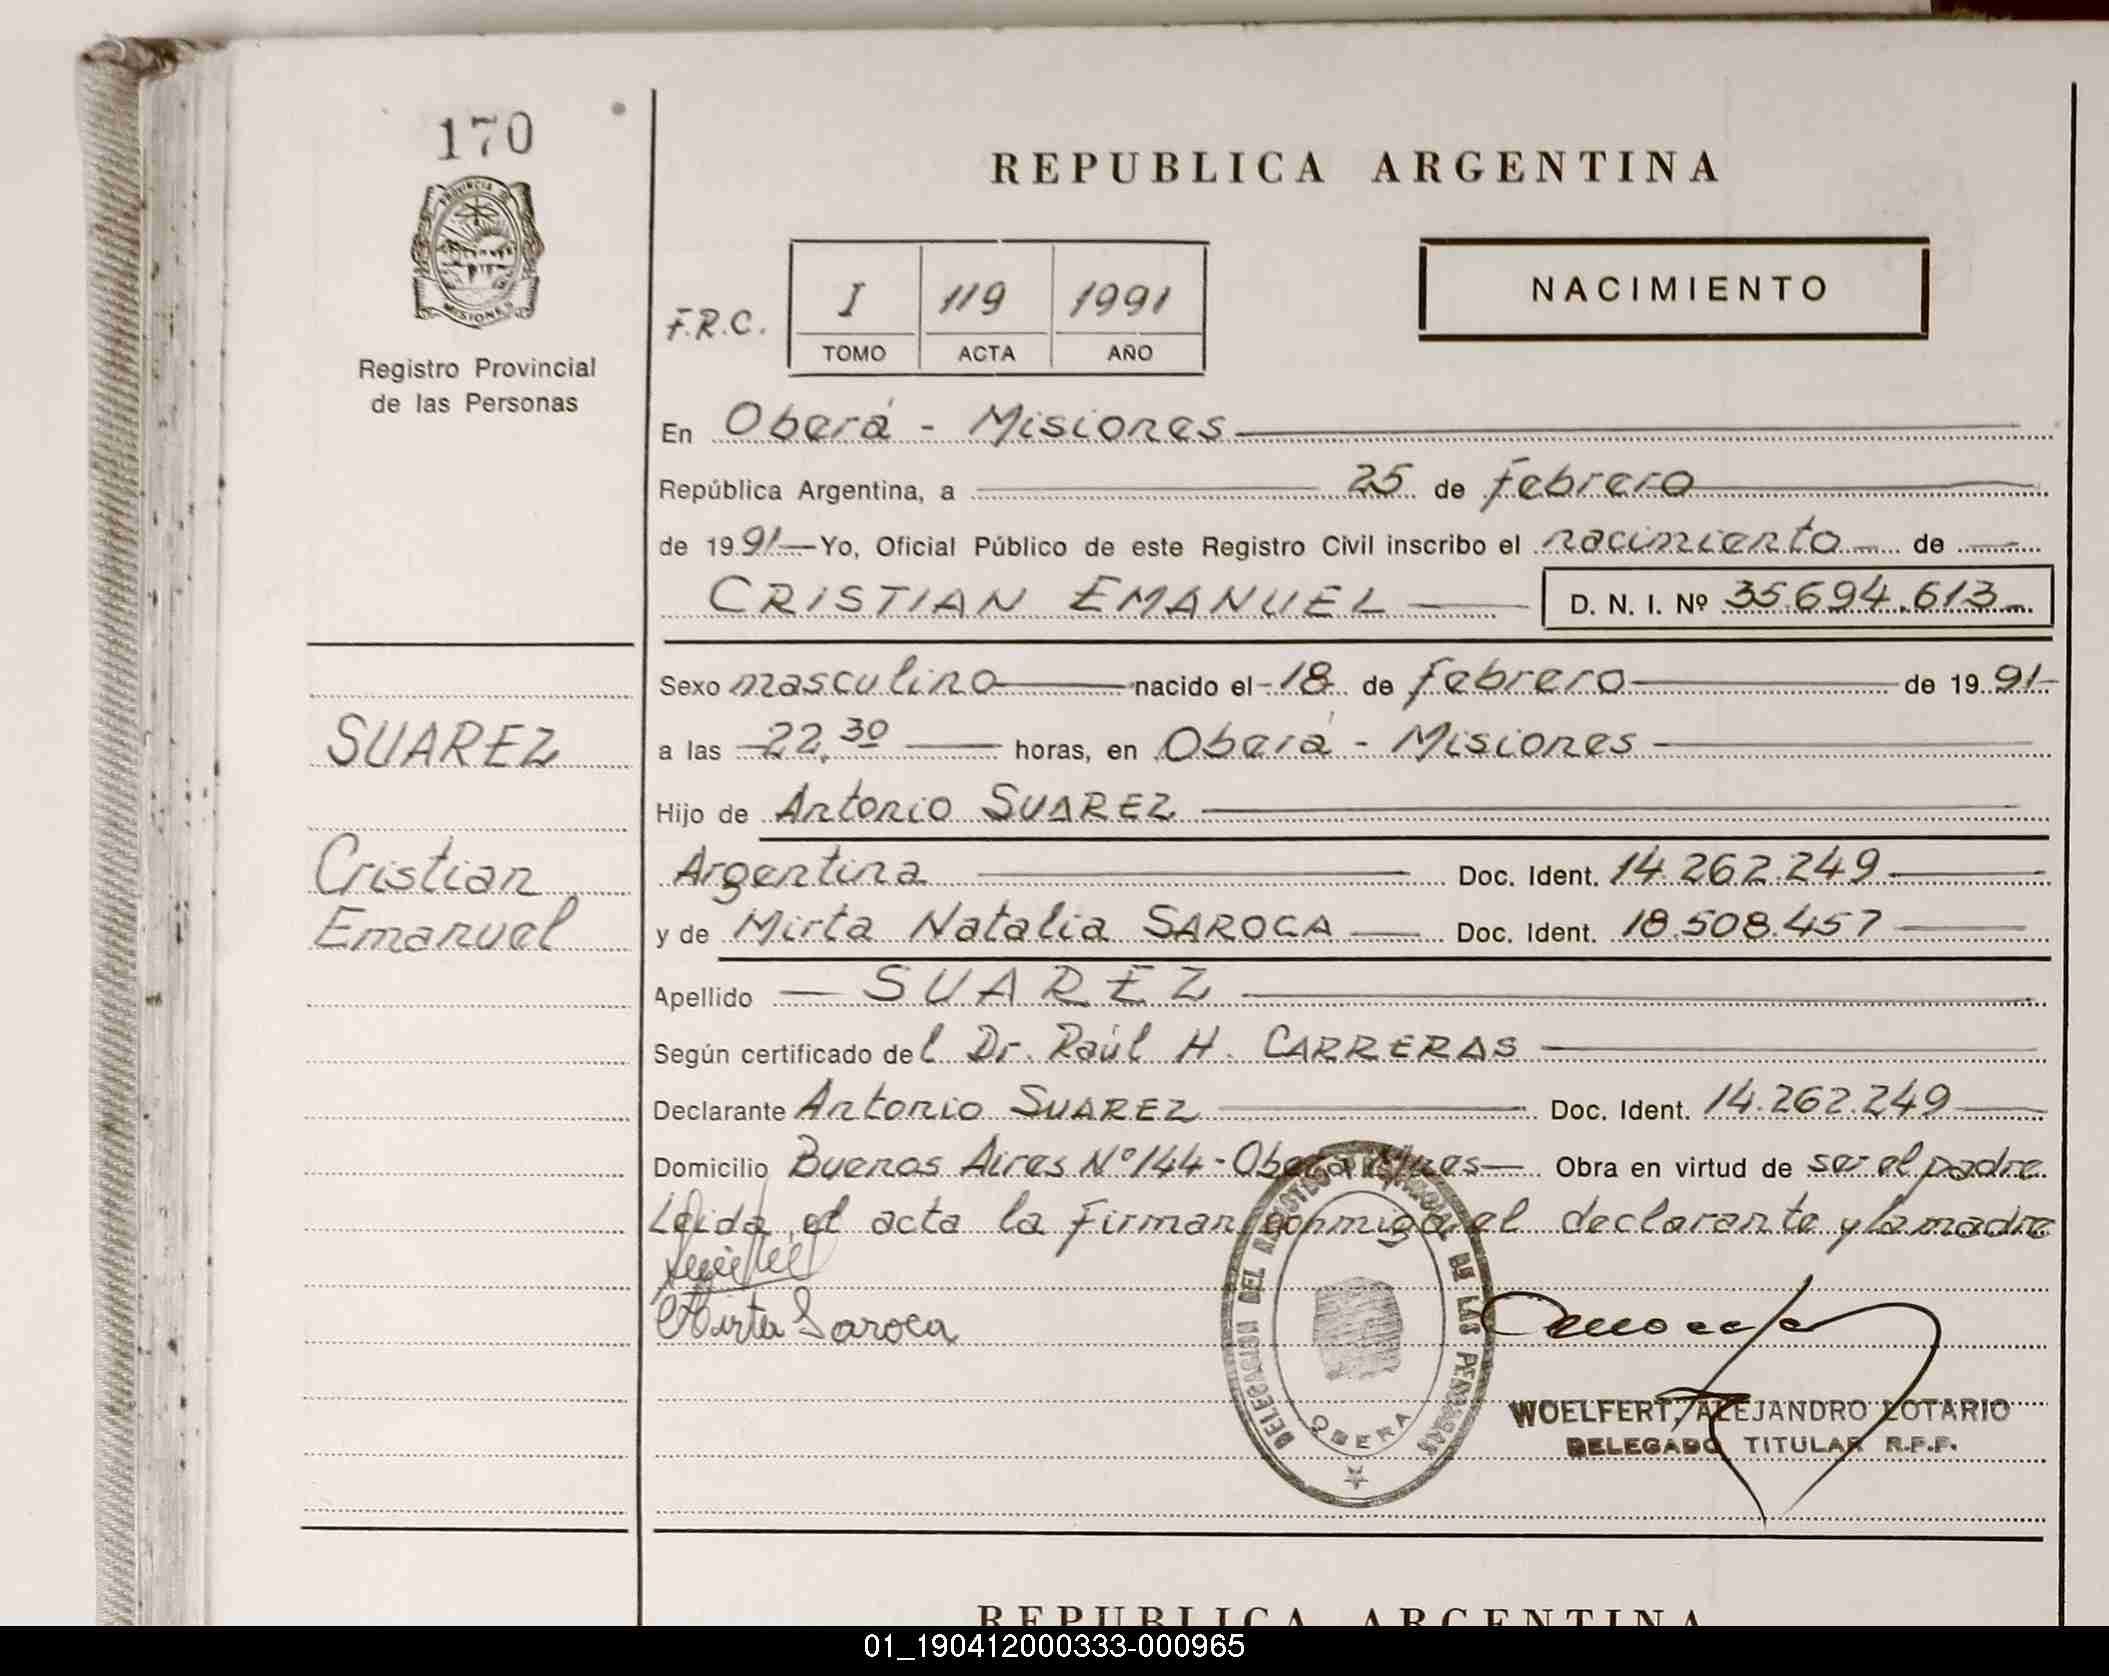 170
PROVINCIA DE
MISIONES
Registro Provincial
de las Personas
REPUBLICA ARGENTINA
F.R.C.
I 119 1991
TOMO ACTA AÑO
NACIMIENTO
En Oberá - Misiones
República Argentina, a 25 de Febrero
de 1991 Yo, Oficial Público de este Registro Civil inscribo el nacimiento de
CRISTIAN EMANUEL D. N. I. Nº 35.694.613
SUAREZ
Cristian
Emanuel
Sexo masculino nacido el 18 de Febrero de 1991
a las 22,30 horas, en Oberá - Misiones
Hijo de Antonio SUAREZ
Argentina Doc. Ident. 14.262.249
y de Mirta Natalia SAROCA Doc. Ident. 18.508.457
Apellido SUAREZ
Según certificado del Dr. Raúl H. CARRERAS
Declarante Antonio SUAREZ Doc. Ident. 14.262.249
Domicilio Buenos Aires Nº 144 - Oberá Mnes Obra en virtud de ser el padre
Leida el acta la Firman conmigo el declarante y la madre
Mirta Saroca
DELEGACION DEL REGISTRO PROVINCIAL DE LAS PERSONAS
OBERA
WOELFERT, ALEJANDRO LOTARIO
DELEGADO TITULAR R.P.P.
REPUBLICA ARGENTINA
01_190412000333-000965